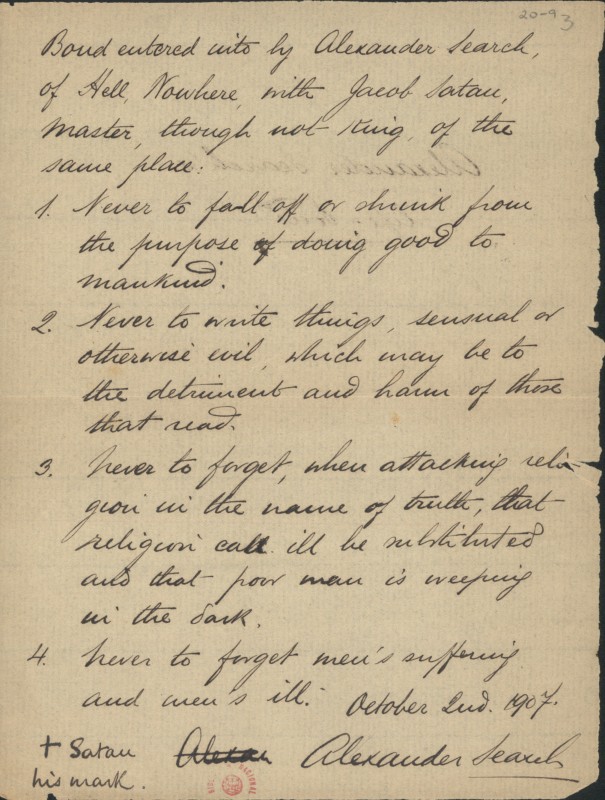 20-93
Bond entered into by Alexander Search,
of Hell, Nowhere, with Jacob Satan,
master, though not King, of the
same place:
1. Never to fall off or shrink from
the purpose of doing good to
mankind.
2. Never to write things, sensual or
otherwise evil, which may be to
the detriment and harm of those
that read.
3. Never to forget, when attacking reli-
gion in the name of truth, that
religion can ill be substituted
and that poor man is weeping
in the dark.
4. Never to forget men's suffering
and men's ill.
October 2nd. 1907.
+ Satan
his mark.
Alexan
Alexander Search